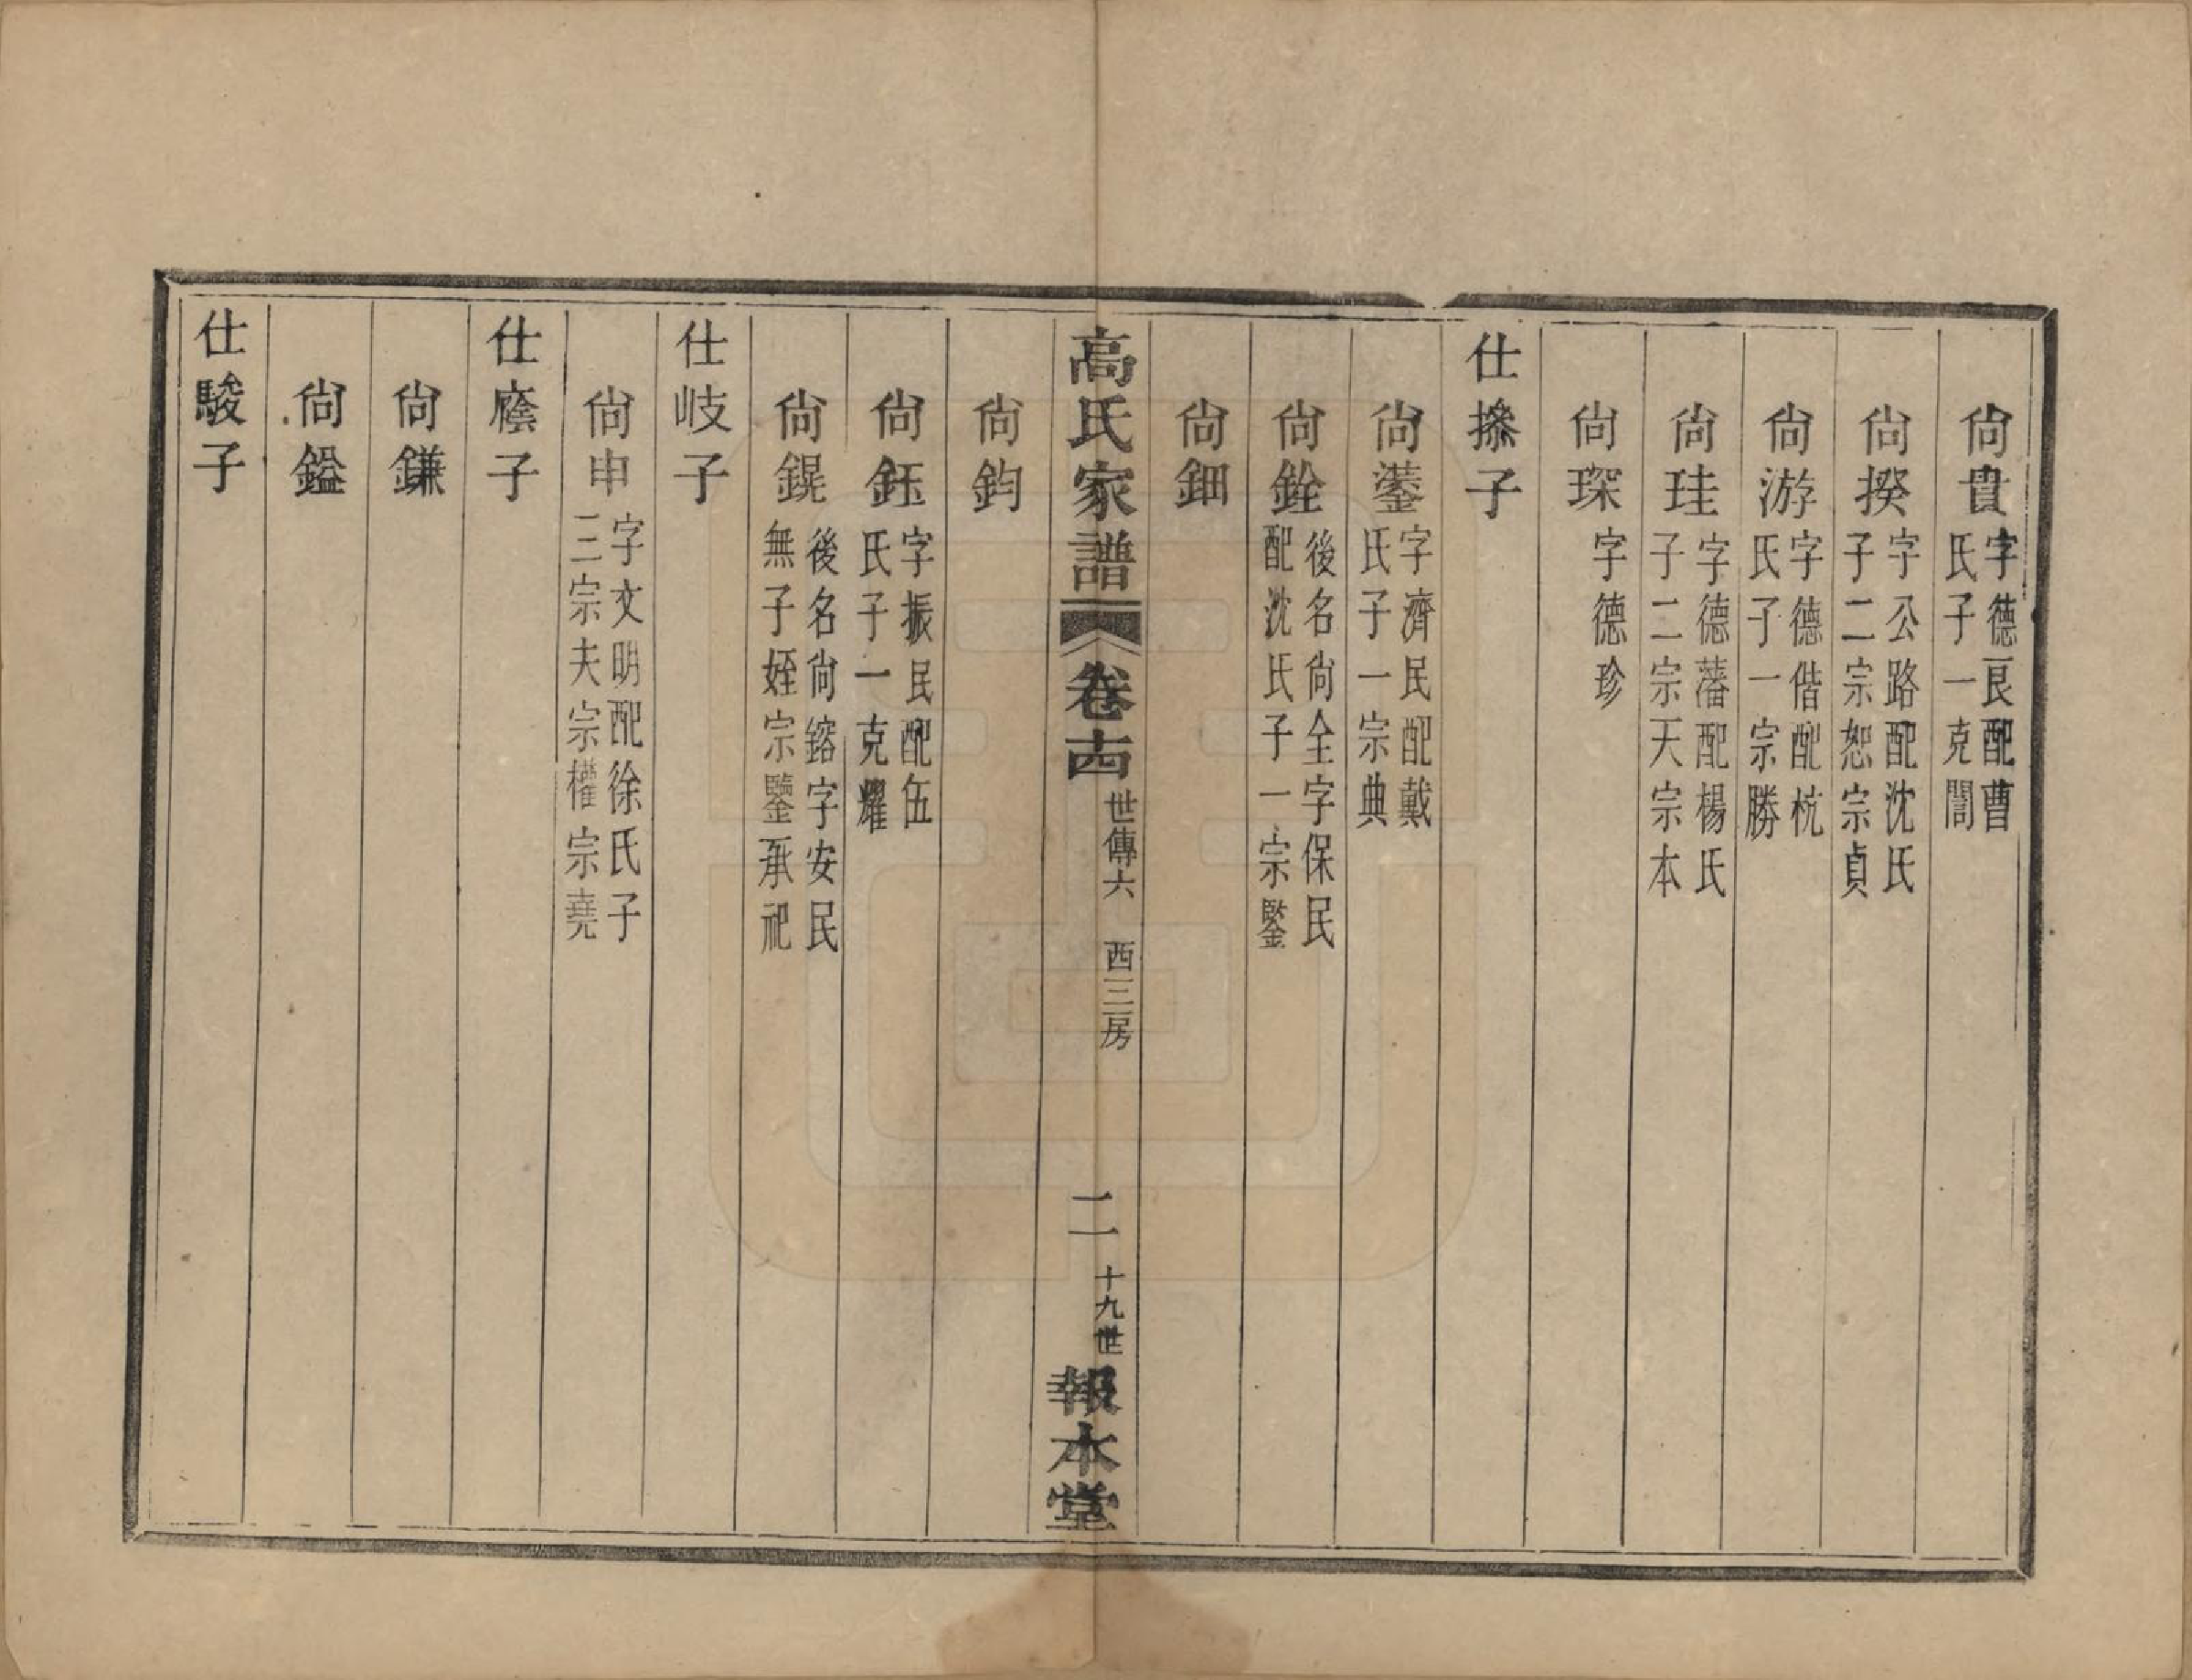 尙貴 字德良配曹
氏子一克誾
尙揆 字公路配沈氏
子二宗恕宗貞
尙游 字德偕配杭
氏子一宗勝
尙珪 字德藩配楊氏
子二宗天宗本
尙琛 字德珍
仕摻子
尙蓥 字濟民配戴
氏子一宗典
尙銓 後名尙全字保民
配沈氏子一宗鑒
尙鈿
高氏家譜 卷十四 世傳六 西三房 二 十九世 報本堂
尙鈞
尙鈺 字振民配伍
氏子一克耀
尙錕 後名尙鎔字安民
無子姪宗鑒承祀
仕岐子
尙申 字文明配徐氏子
三宗夫宗權宗堯
仕廕子
尙鎌
尙鎰
仕駿子